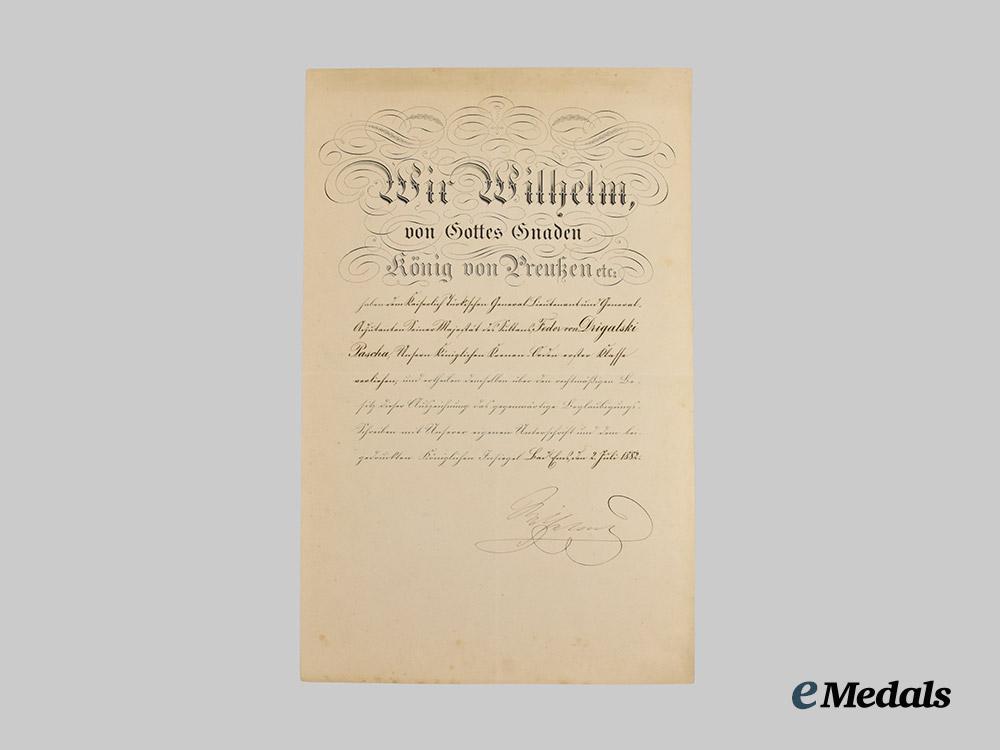 Wir Wilhelm,
von Gottes Gnaden
König von Preußen etc:
haben dem Kaiserlich Türkischen General-Lieutenant und General-
Adjutanten Seiner Majestät des Sultans, Fedor von Drigalski
Pascha, Unsern Königlichen Kronen-Orden erster Klasse
verliehen, und ertheilen demselben über den rechtmäßigen Be-
sitz dieser Auszeichnung das gegenwärtige Beglaubigungs-
Schreiben mit Unserer eigenen Unterschrift und dem bei-
gedruckten Königlichen Insiegel. Bad Ems, den 2. Juli 1882.
Wilhelm
eMedals